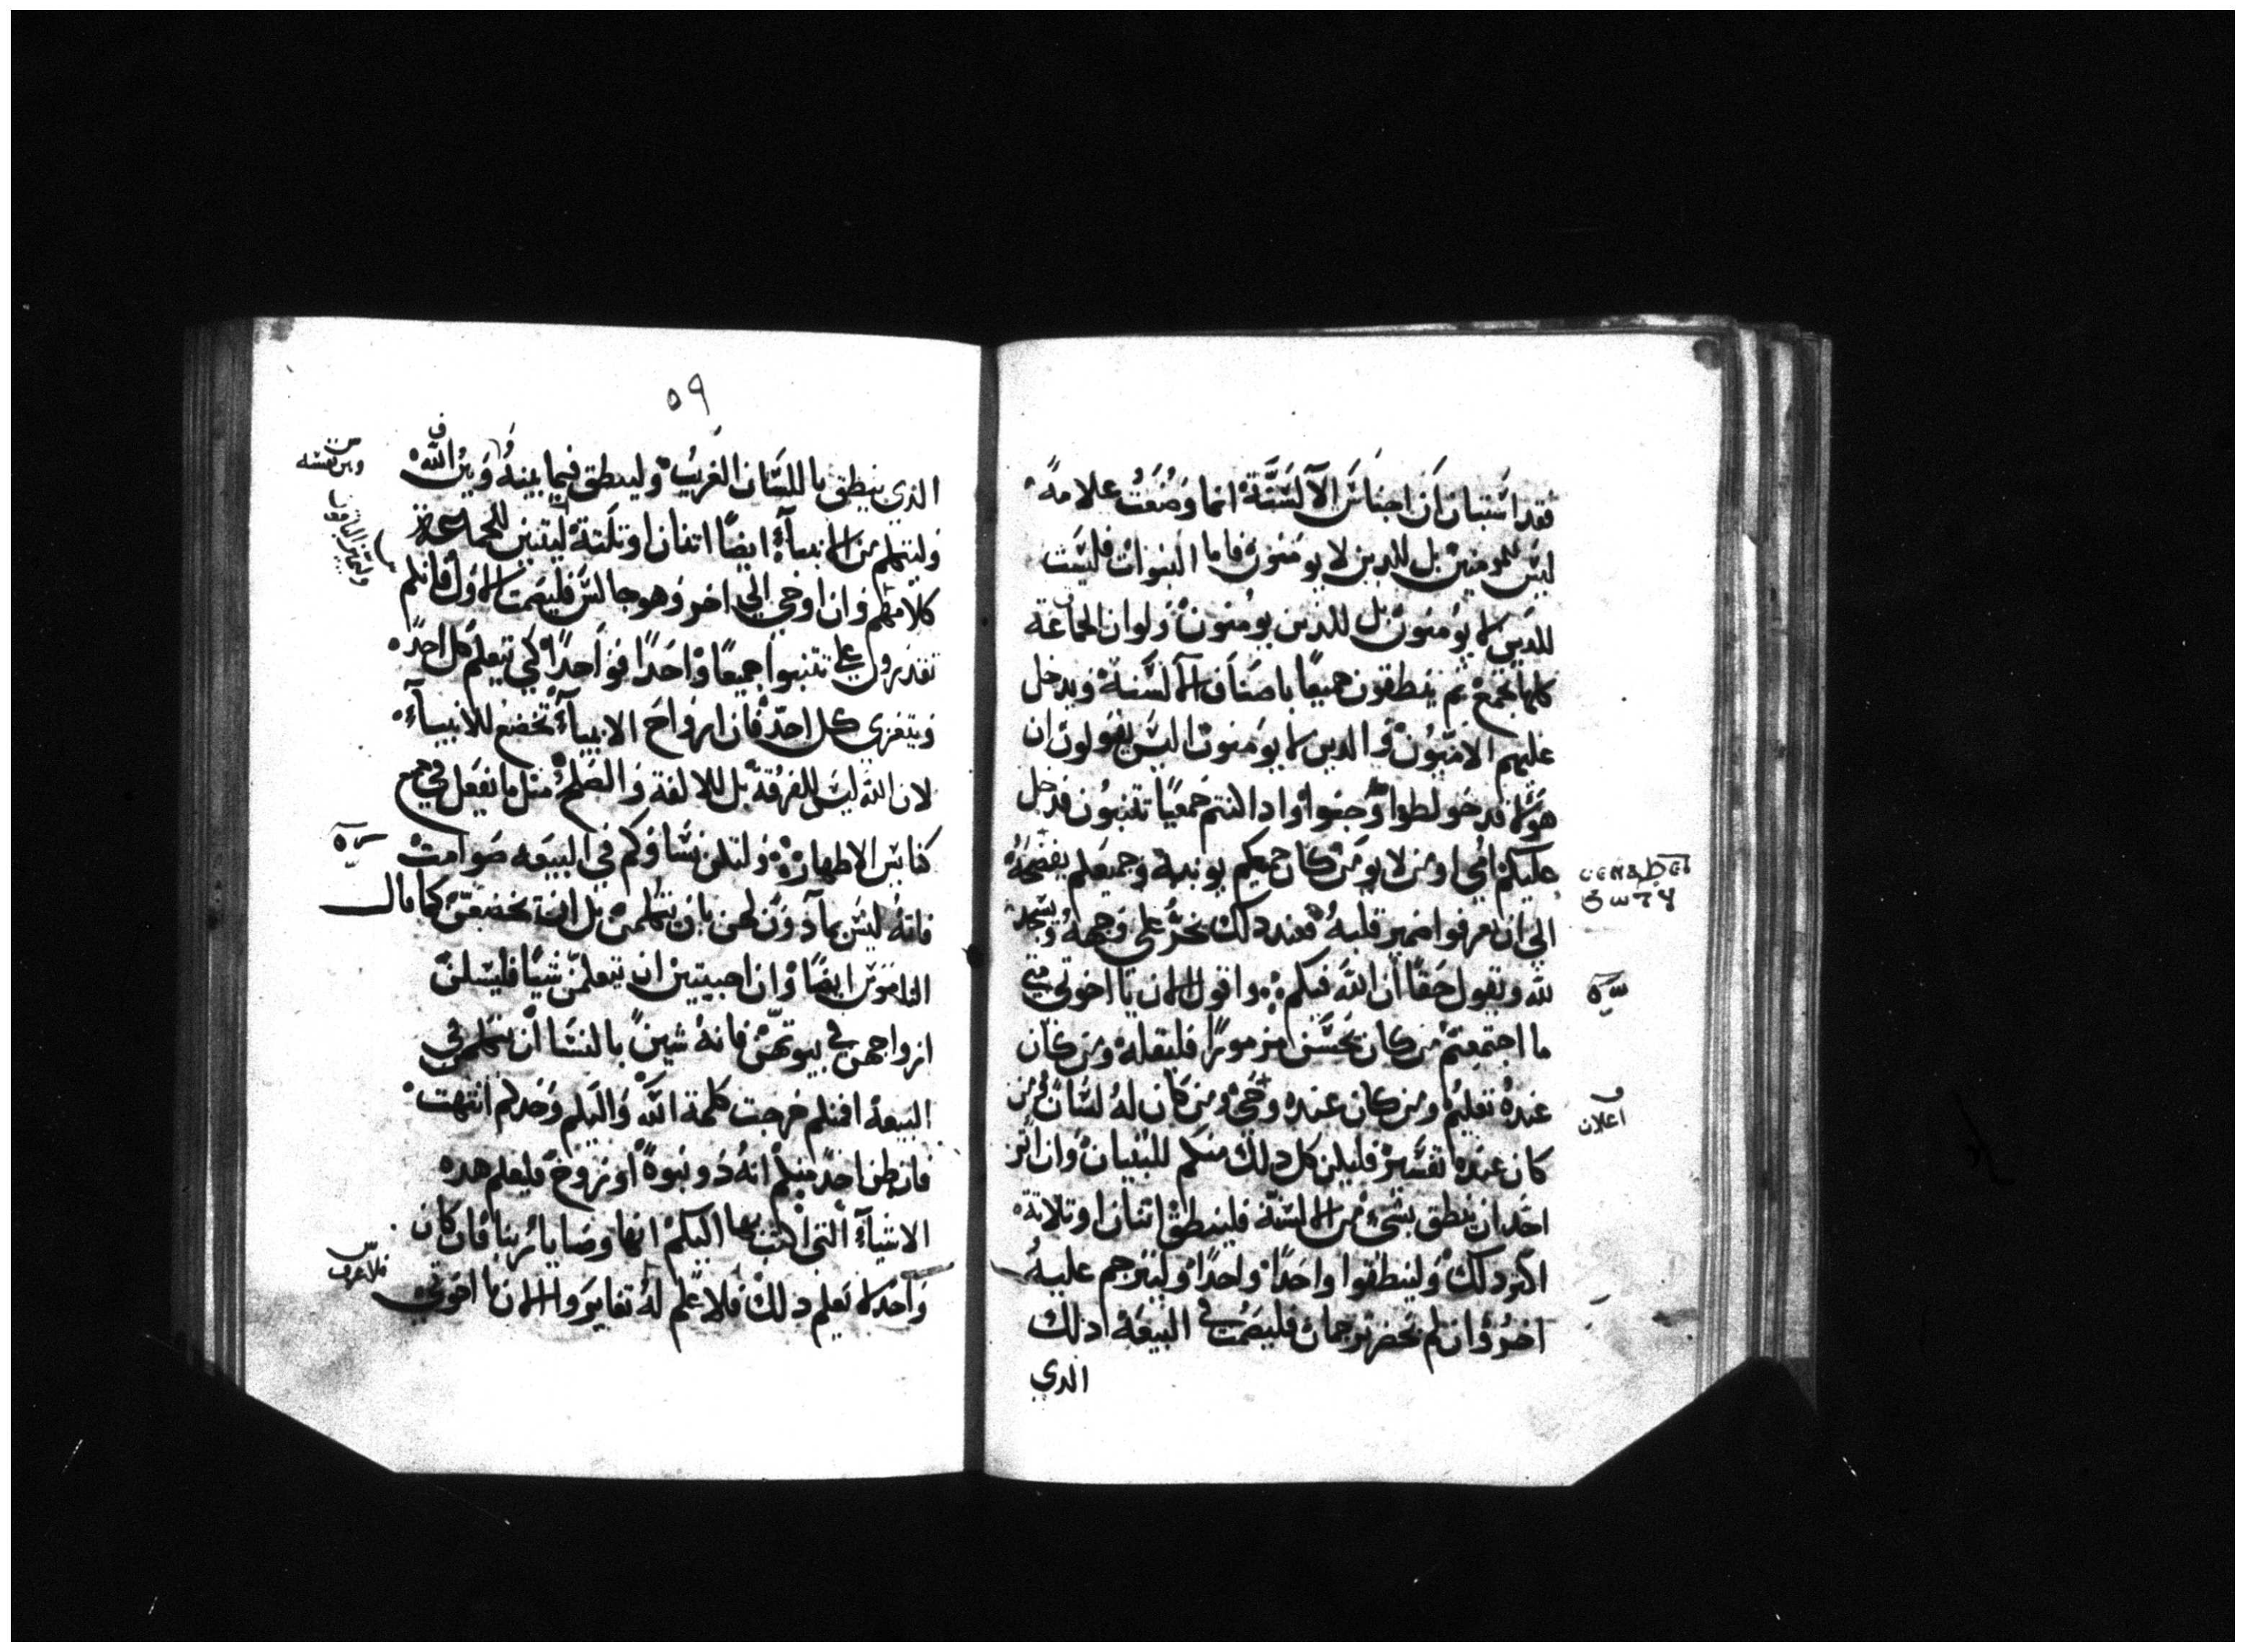 فقد استبان ان اجناس الالسنة انما وضعت علامة
ليس للمومنين بل للدين لا يومنون فاما النبوات فليست
للدين لا يومنون بل للدين يومنون ولو ان الجماعة
كلها تجمع ثم ينطقون جميعا باصناف الالسنة ويدخل
عليهم الاميون والدين لا يومنون اليس يقولون ان
هولا قد خولطوا وجنوا واذا كنتم جميعا تتنبون فدخل
عليكم امي او من لا يومن كان جميعكم يوبنه وجميعكم يفتحه
الي ان يعرفوا ضمير قلبه فعند دلك يخر علي وجهه ويسجد
لله ويقول حقا ان الله فيكم واقول الان يا اخوتي متي
ما اجتمعتم من كان يحسن مزمورا فليقله ومن كان
عنده تعليم ومن كان عنده وحي ومن كان له لسان ومن
كان عنده تفسير فليكن كل دلك منكم للبنيان وان اثر
احد ان ينطق بشي من الالسنة فلينطق اتنان او تلاتة
اكتر دلك ولينطقوا واحدا واحدا وليترجم عليه
اخر وان لم يحضر ترجمان فليصمت في البيعة ادلك
الدي
اعلان
٥٩
الدي ينطق باللسان الغريب ولينطق فيما بينه وبين الله
وليتكلم من الانبياء ايضا اتنان او تلتة ليتبين للجماعة
كلامهم وان اوحي الي اخر وهو جالس فليصمت الاول فانكم
تقدرون علي تتنبوا جميعا واحدا فواحدا كي يتعلم كل احد
ويتعزي كل احد فان ارواح الانبياء تخضع للانبياء
لان الله ليس للفرقة بل للالفة والصلح مثل ما نفعل في جميع
كنايس الاطهار ولتكن نساوكم في البيعه صوامت
فانه ليس بمآدون لهن بان يتكلمن بل ان يخضعن كما قال
الناموس ايضا وان احببتين ان يتعلمن شيا فليسلن
ازواجهن في بيوتهن فانه شين بالنسا ان يتكلمن في
البيعة افمنكم خرجت كلمة الله واليكم وحدكم انتهت
فان ظن احد منكم انه دو نبوة او روح فليعلم هده
الاشياء التي اكتب بها اليكم انها وصايا ربنا فان كان
واحد لا يعلم دلك فلا علم له تغايروا الان يا اخوتي
وبين نفسه
فلا عرف